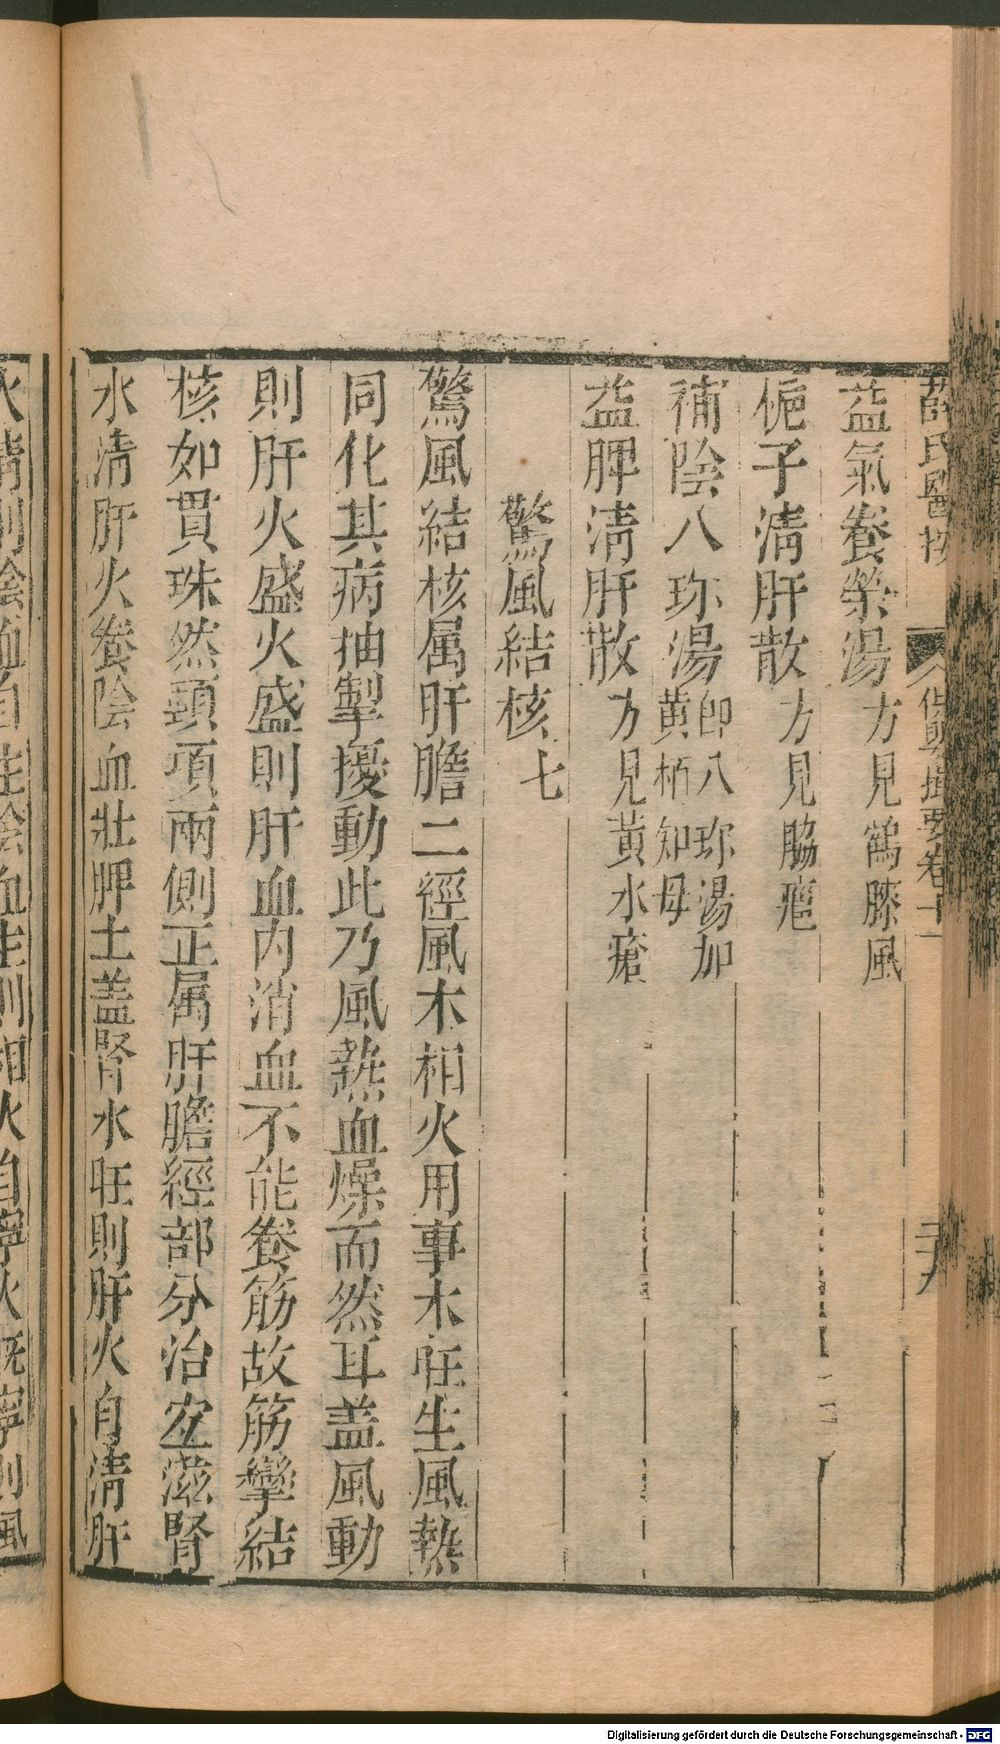 薛氏醫按 保嬰撮要卷十一
益氣養榮湯方見鶴膝風
梔子清肝散方見脇癰
補陰八珎湯即八珎湯加黄栢知母
益脾清肝散方見黃水瘡
驚風結核七
驚風結核属肝膽二徑風木相火用事木旺生風熱
同化其病抽掣擾動此乃風熱血燥而然耳盖風動
則肝火盛火盛則肝血内消血不能養筋故筋攣結
核如貫珠然頸項兩側正属肝膽經部分治宜滋腎
水清肝火養陰血壯脾土盖腎水旺則肝火自清肝
火清則陰血自生陰血生則相火自寧火旣寧則風
Digitalisierung gefördert durch die Deutsche Forschungsgemeinschaft - DFG